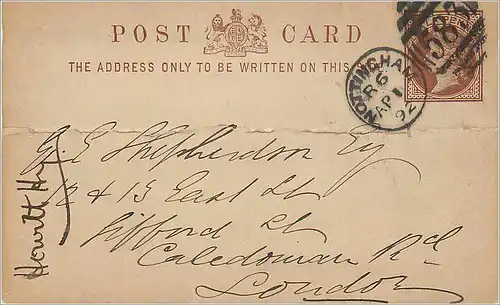 POST CARD
THE ADDRESS ONLY TO BE WRITTEN ON THIS
NOTTINGHAM
R 6
AP 1
92
G. E. Shepherdson Esq
2 & 13 East St
Gifford St
Caledonian Rd
London
Howitt Hy